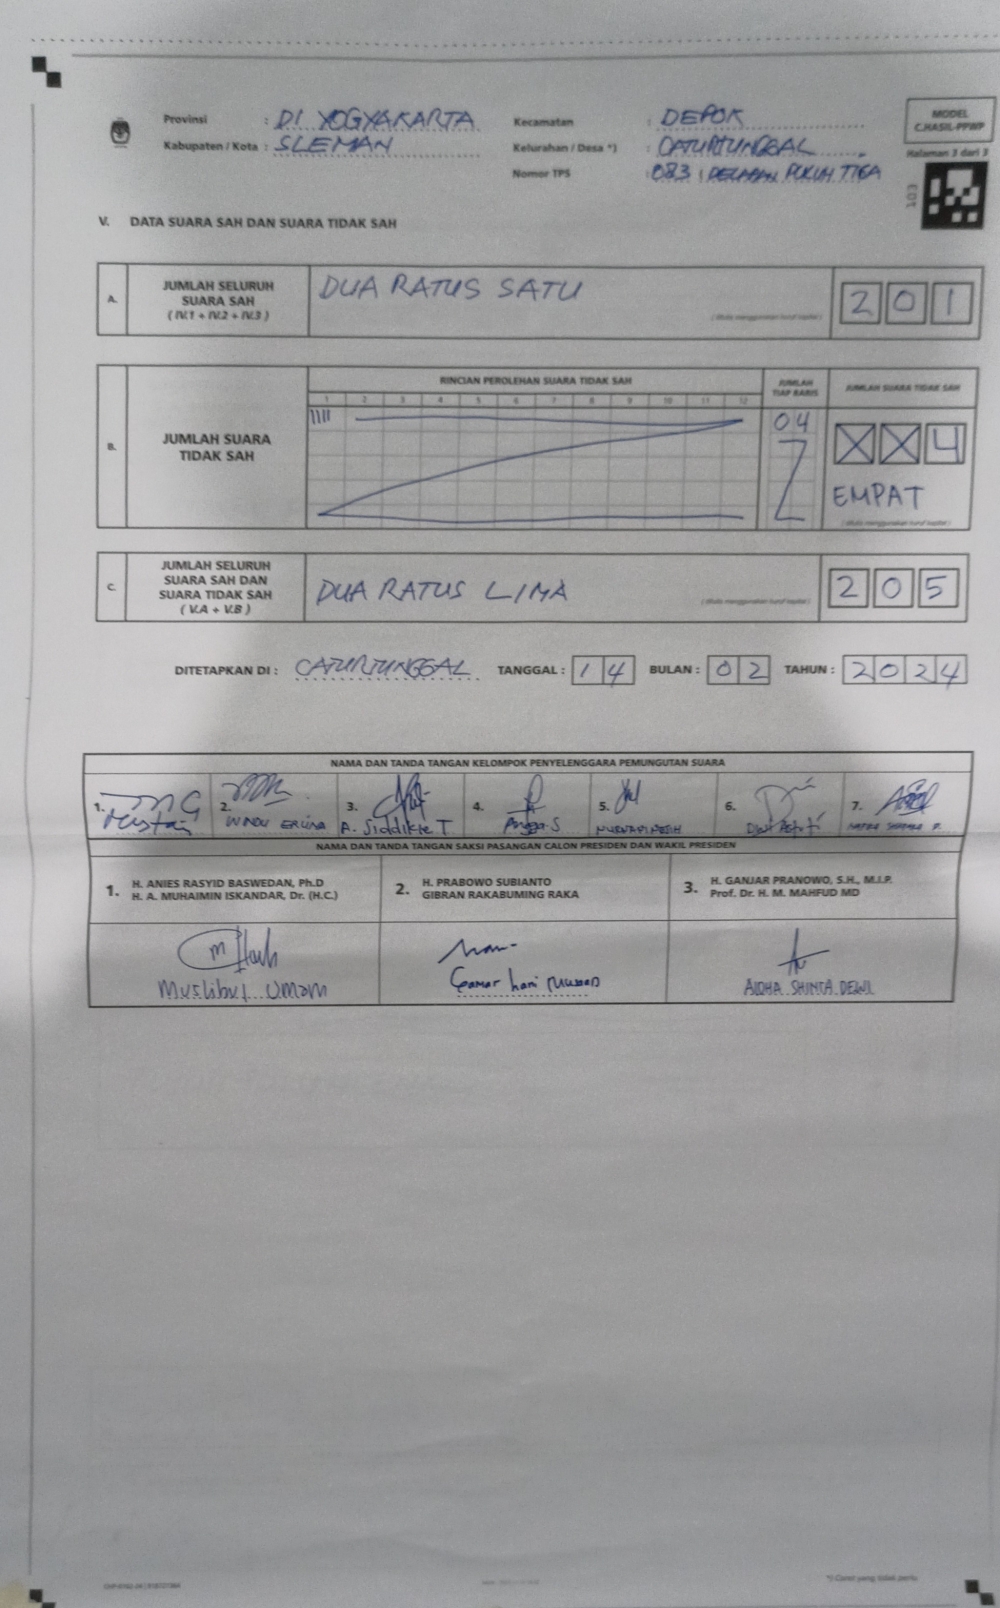 Provinsi : DI YOGYAKARTA
Kabupaten / Kota : SLEMAN
Kecamatan : DEPOK
Kelurahan / Desa *) : CATURTUNGGAL
Nomor TPS : 083 / DELAPAN PULUH TIGA
MODEL
C.HASIL-PPWP
Halaman 3 dari 3
103
V. DATA SUARA SAH DAN SUARA TIDAK SAH
A. JUMLAH SELURUH
SUARA SAH
( IV.1 + IV.2 + IV.3 )
DUA RATUS SATU
( ditulis menggunakan huruf kapital )
2 0 1
B. JUMLAH SUARA
TIDAK SAH
RINCIAN PEROLEHAN SUARA TIDAK SAH
1 2 3 4 5 6 7 8 9 10 11 12
JUMLAH
TIAP BARIS
04
JUMLAH SUARA TIDAK SAH
X X 4
EMPAT
( ditulis menggunakan huruf kapital )
C. JUMLAH SELURUH
SUARA SAH DAN
SUARA TIDAK SAH
( V.A + V.B )
DUA RATUS LIMA
( ditulis menggunakan huruf kapital )
2 0 5
DITETAPKAN DI : CATURTUNGGAL TANGGAL : 14 BULAN : 02 TAHUN : 2024
NAMA DAN TANDA TANGAN KELOMPOK PENYELENGGARA PEMUNGUTAN SUARA
1.
2. WINDU
3. A. Siddikie T
4. Angga S
5.
6. Dwi Astuti
7.
NAMA DAN TANDA TANGAN SAKSI PASANGAN CALON PRESIDEN DAN WAKIL PRESIDEN
1. H. ANIES RASYID BASWEDAN, Ph.D
H. A. MUHAIMIN ISKANDAR, Dr. (H.C.)
2. H. PRABOWO SUBIANTO
GIBRAN RAKABUMING RAKA
3. H. GANJAR PRANOWO, S.H., M.I.P.
Prof. Dr. H. M. MAHFUD MD
Muslibul Umam
hani
AIDHA SHINTA DEWI
*) Coret yang tidak perlu